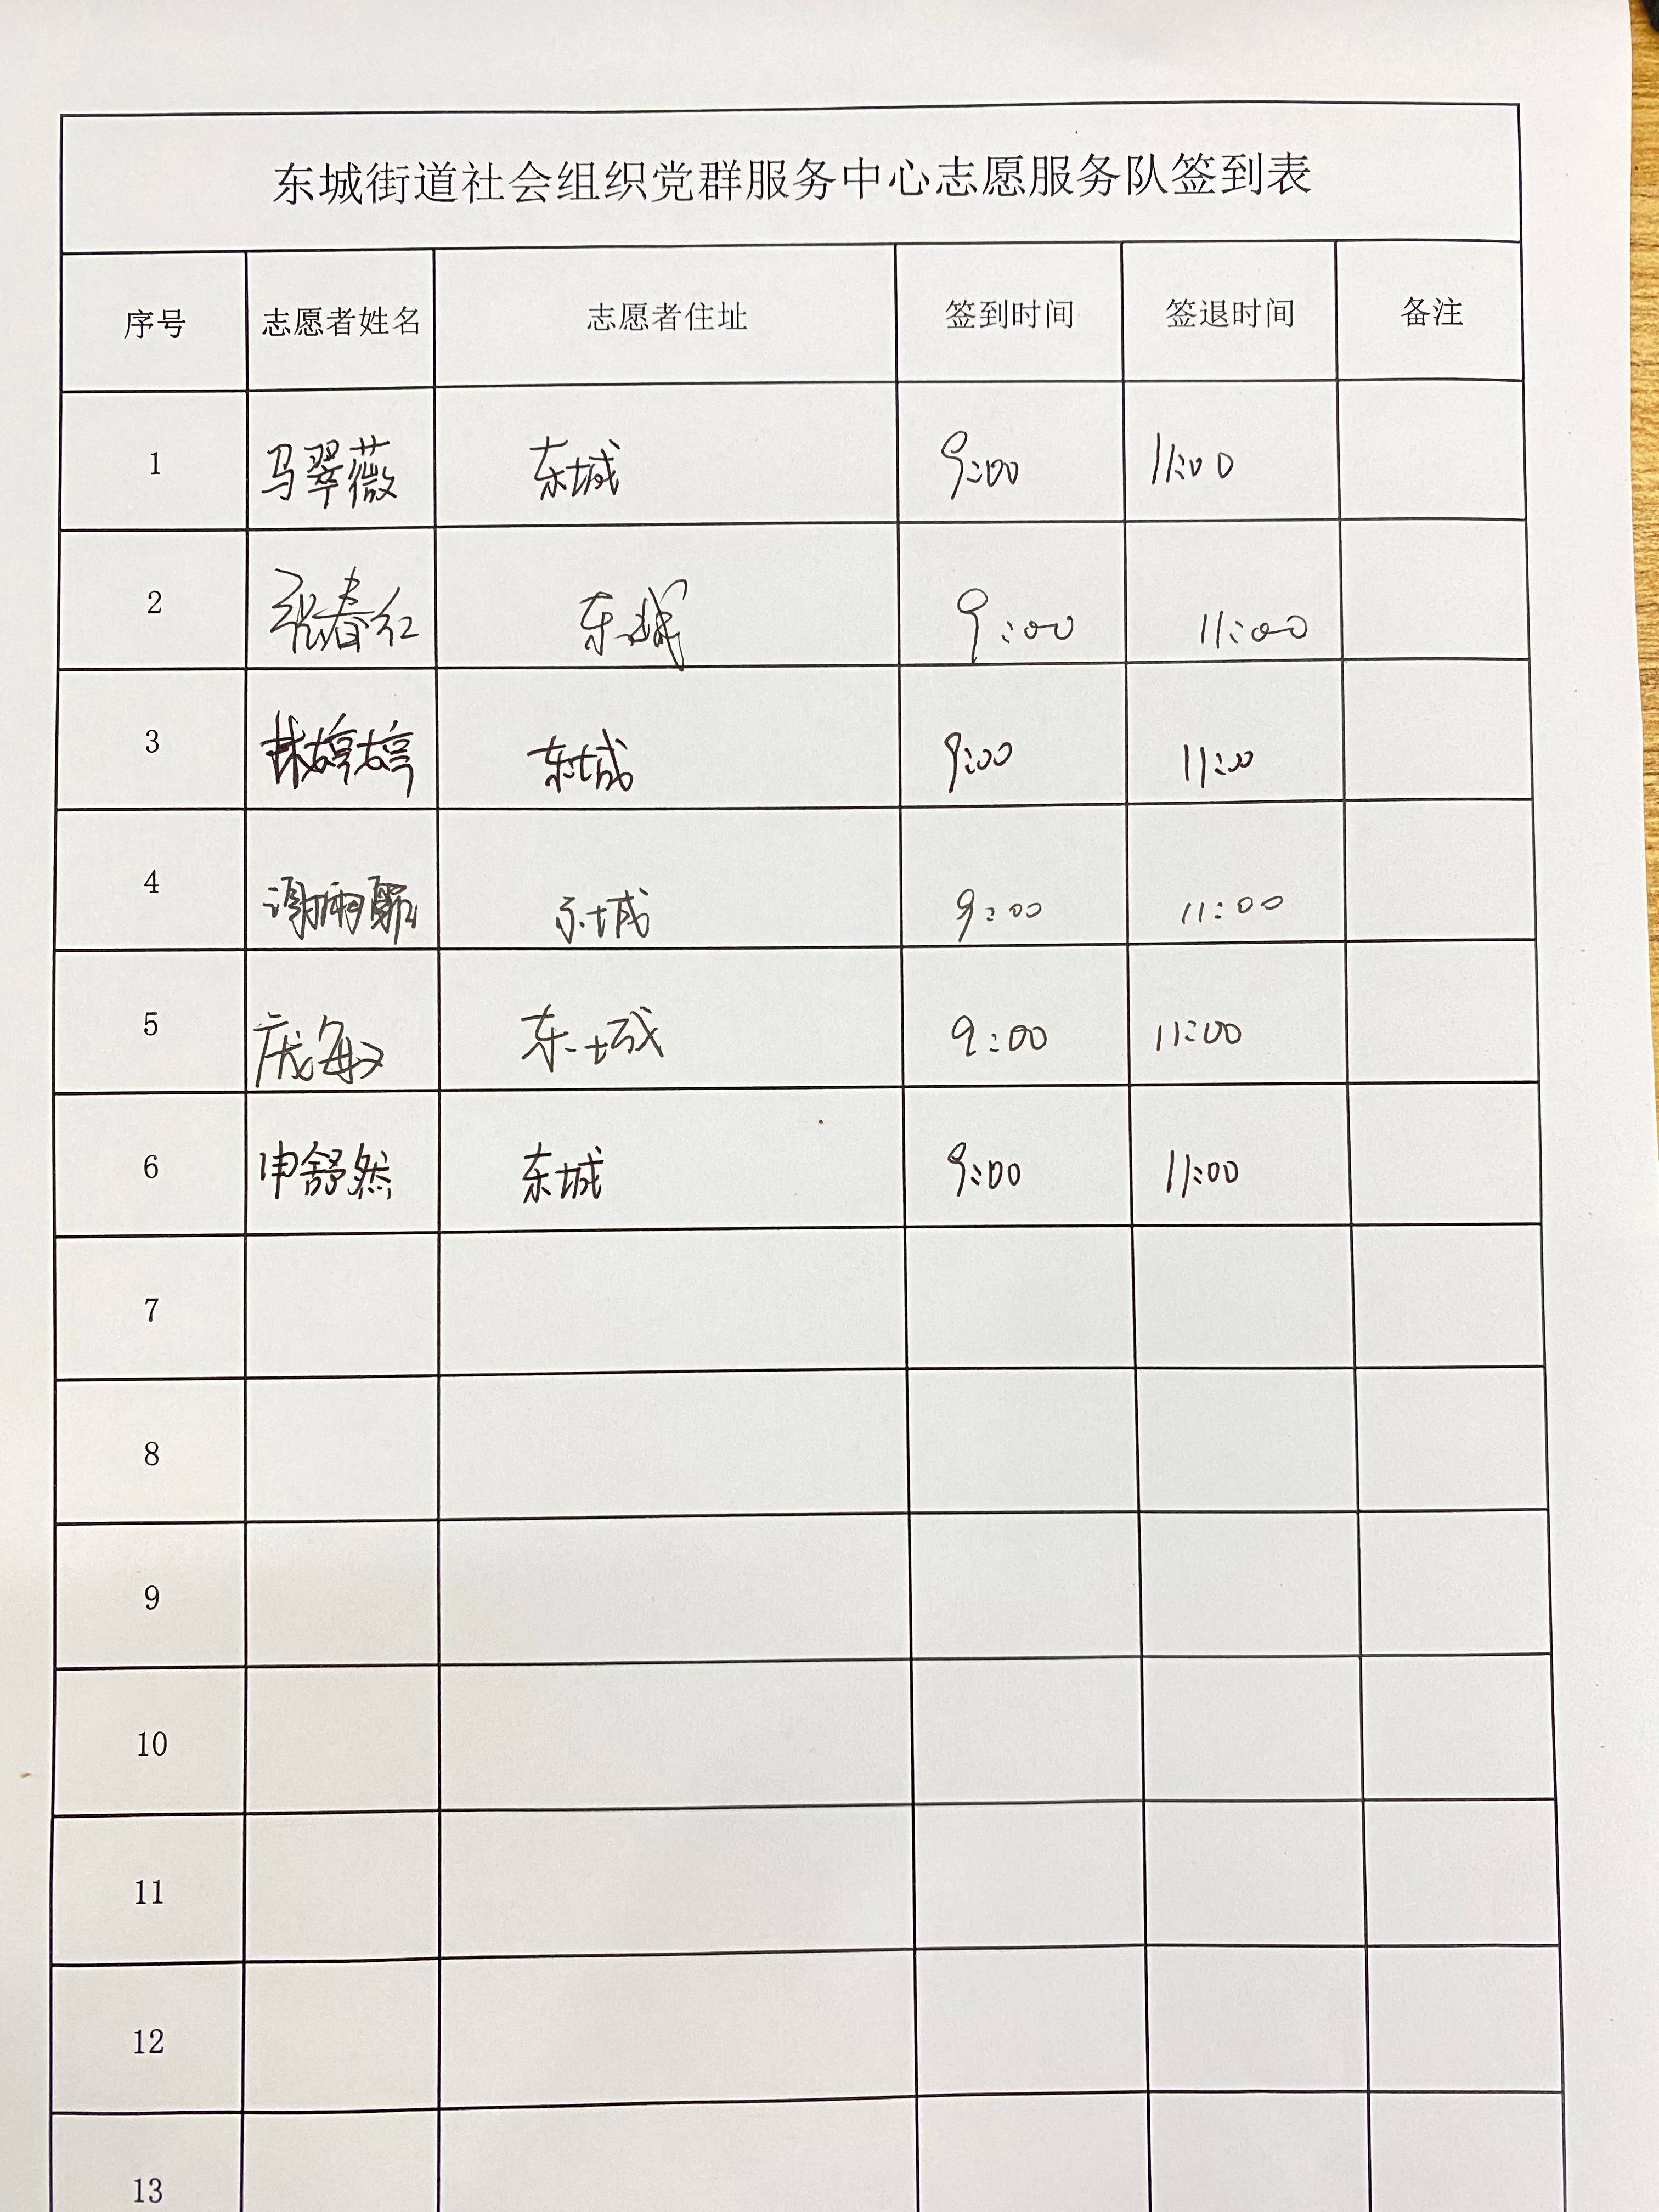 东城街道社会组织党群服务中心志愿服务队签到表
序号 志愿者姓名 志愿者住址 签到时间 签退时间 备注
1 马翠薇 东城 9:00 11:00
2 张春红 东城 9:00 11:00
3 林婷婷 东城 9:00 11:00
4 谢雨 东城 9:00 11:00
5 庞敏 东城 9:00 11:00
6 申舒然 东城 9:00 11:00
7
8
9
10
11
12
13